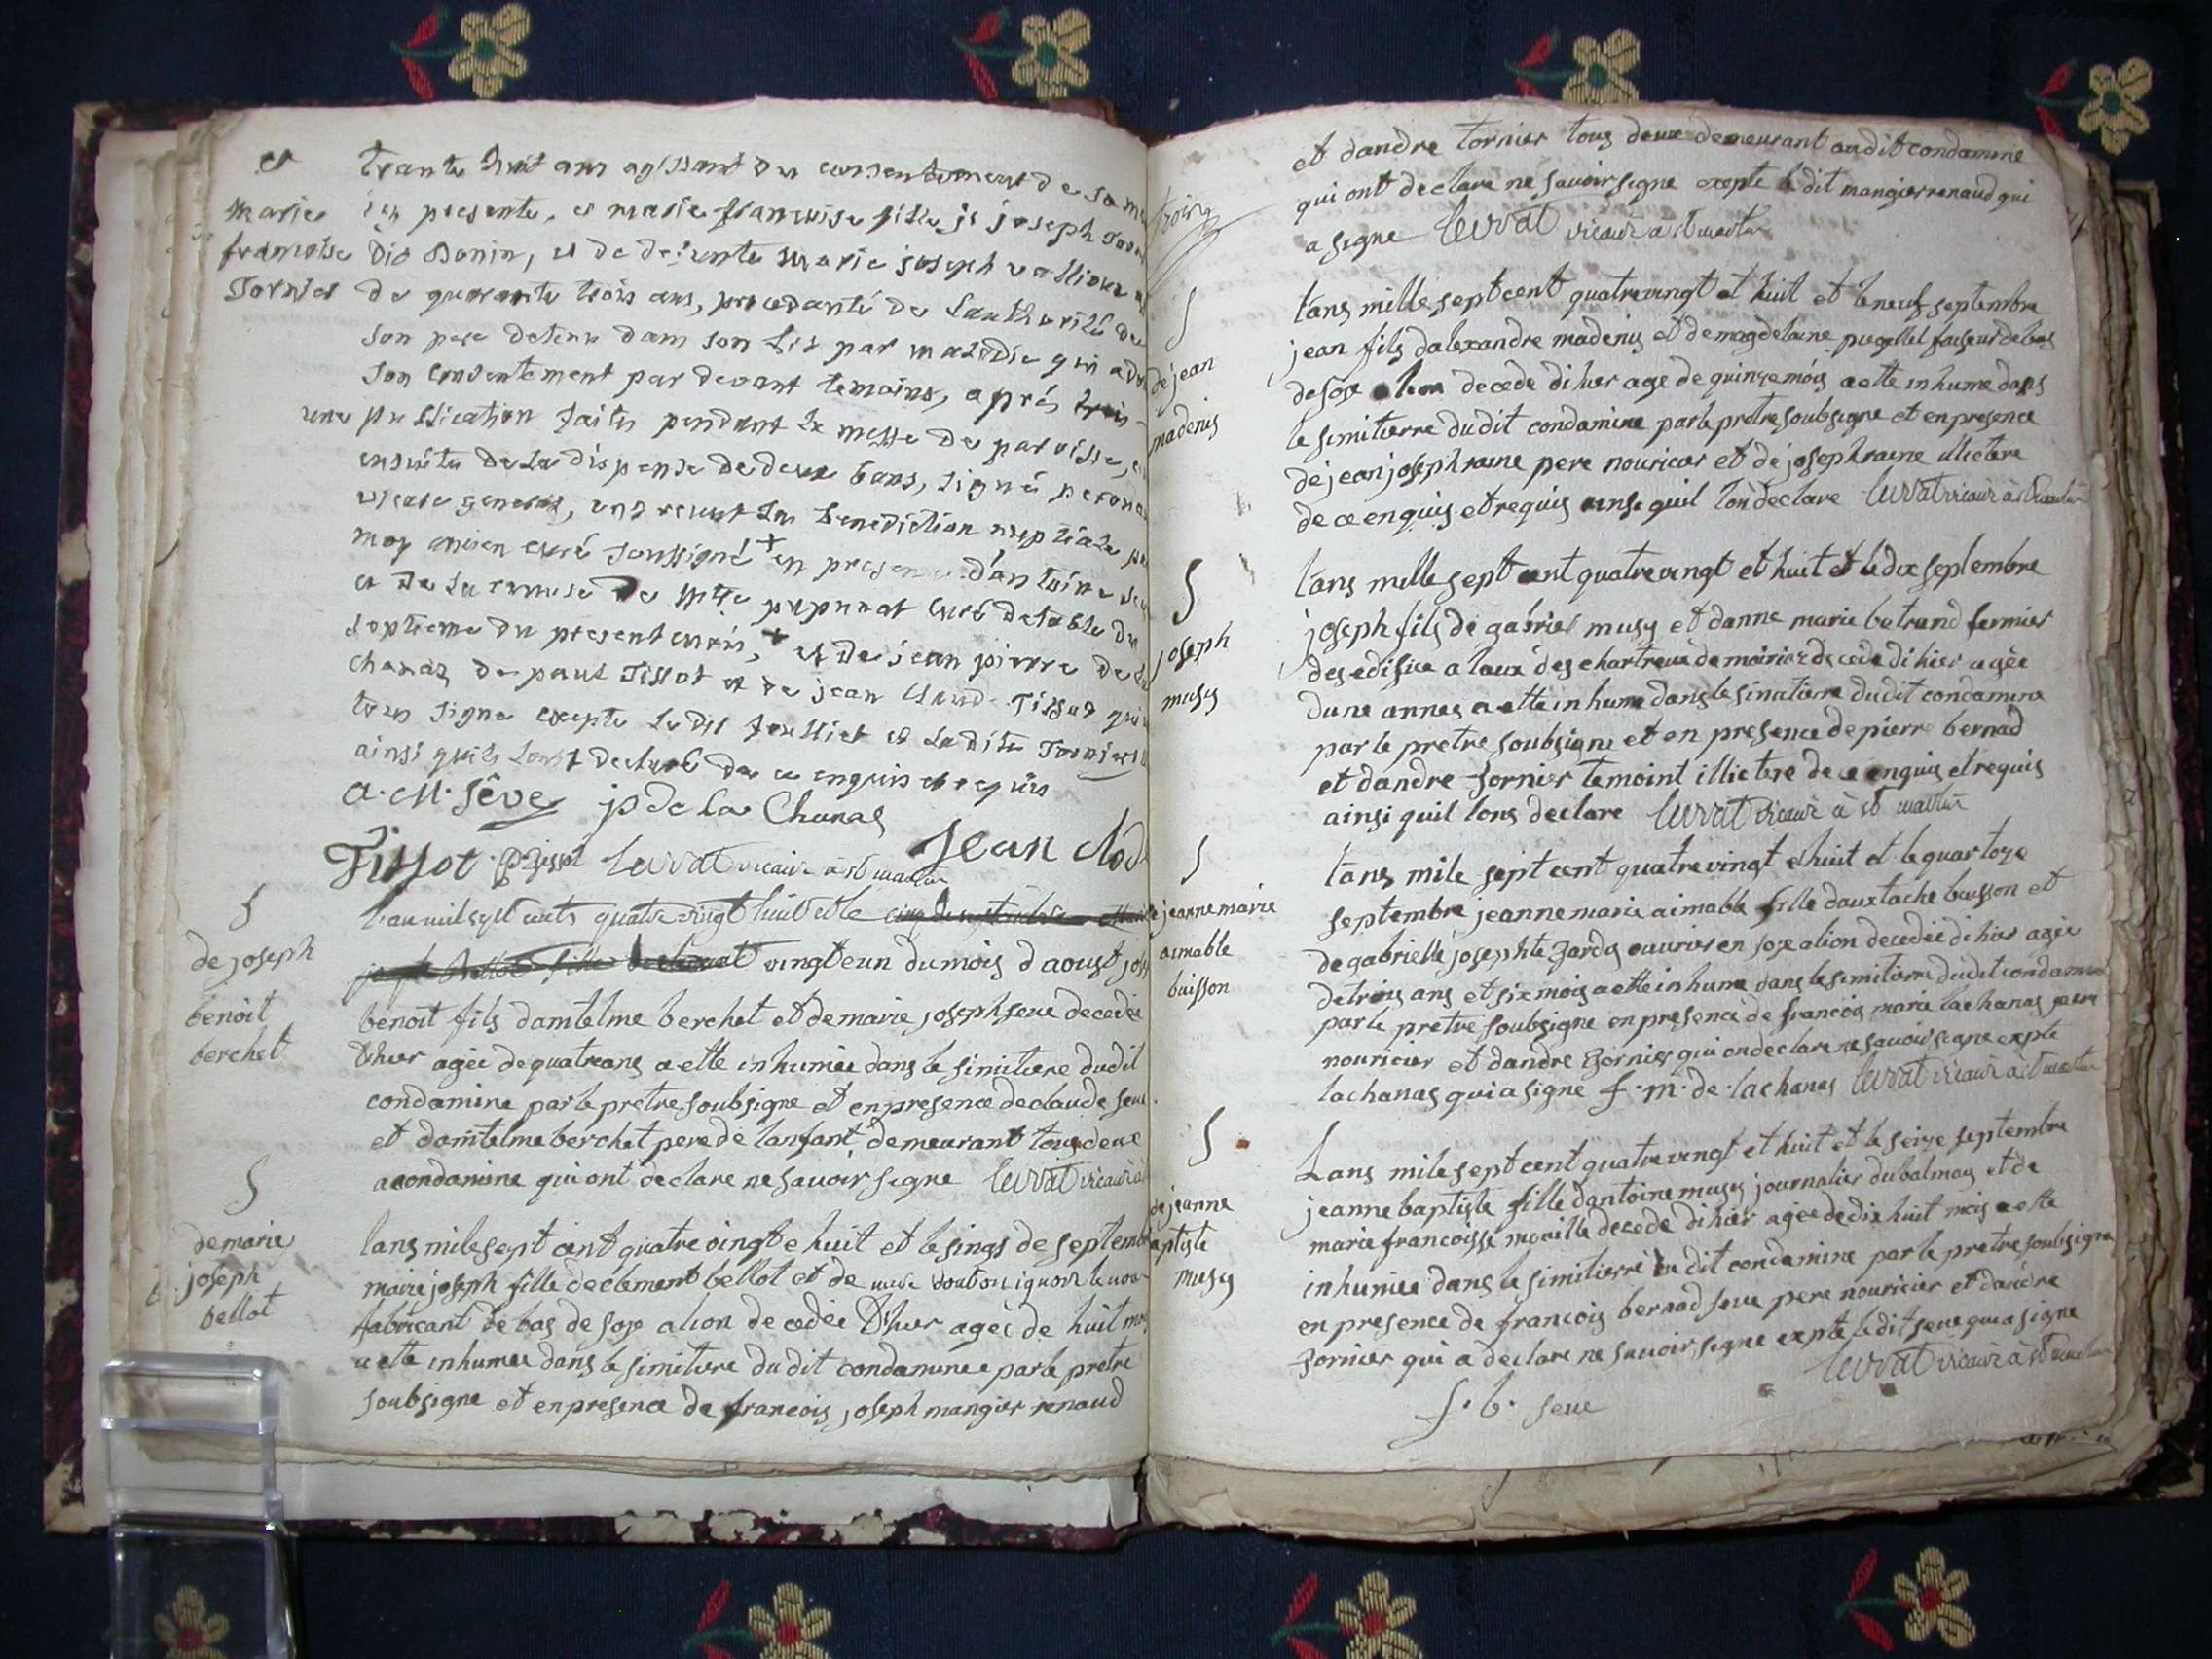 et
marie
francoise
Tornier
trante huit ans agissant du consentement de sa
icy presente, et marie francoise fille
dit Bonin, et de defunte marie joseph
de quarante trois ans, procedante de Lauthorité de
son pere detenu dans son Lit par maladie qui a
son consentement par devant temoins, aprés
une publication faite pendant la messe de parroisse,
ensuite de La dispense de deux bans, signé
vicaire general, ont recut La benediction nuptiale
moy ancien curé soussigné + en presence d'antoine
et de La remise de curé detable du
septieme du present mois, + et de jean pierre de
chanas de paul Tissot et de jean Tissot qui
signe excepte Le dit et La dite Tornier
ainsi quils Lont declaré de ce enquis et requis
a. m. sêve jp de la Chanas
Jean clod
Tissot P Tissot Levrat vicaire à st martin
de joseph
benoit
berchet
L'an mil sept cents quatre vingt huit et le
vingt e un du mois d aoust
benoit fils damtelme berchet et de marie joseph seve decedée
d'hier agée de quatre ans a ette inhumée dans le simitiere du dit
condamine par le pretre soubsigne et en presence de claude
et damtelme berchet pere de lanfant, demeurant tous deux
a condamine qui ont declare ne savoir signe Levrat vicaire à
de marie
joseph
bellot
lans mile sept cent quatre vingt e huit et le sings de
marie joseph fille de clement bellot et de dont on ignore le
fabricant de bas de soye a lion decedée D'hier agée de huit
a ette inhumee dans le simitiere du dit condaminee par le pretre
soubsigne et en presence de francois joseph mangier renaud
et dandre tornier tous deux demeurant au dit condamine
qui ont declare ne savoir signe exepte le dit mangier renaud qui
a signe Levrat vicaire a st martin
de jean
madenis
lans mille sept cent quatre vingt et huit et le neuf septembre
jean fils dalexandre madenis et de magdelaine faiseur de bas
de soye a lion decede di hier age de quinze mois a ette inhume dans
le simitierre du dit condamine par le pretre soubsigne et en presence
de jean joseph raine pere nouricier et de joseph raine illictere
de ce enquis et requis ainse quil lon declare Levrat vicaire à st martin
joseph
musy
lans mille sept cent quatre vingt et huit et le dix septembre
joseph fils de gabriel musy et danne marie betrand fermier
des edifice a laux des chartreux de decede di hier agée
dune annee a ette inhume dans le simitiere du dit condamine
par le pretre soubsigne et en presence de pierre bernad
et dandre fornier temoint illictere de ce enquis et requis
ainsi quil lons declare Levrat vicaire à st martin
de jeanne marie
aimable
buisson
lans mile sept cent quatre vingt e huit et le quartoze
septembre jeanne marie aimable fille dauxtache buisson et
de gabrielle josephte ouvrier en soye a lion decedée di hier agée
de trois ans et six mois a ette inhume dans le simitiere du dit condamine
par le pretre soubsigne en presence de francois marie lachanas pere
nouricier et dandre fornier qui on declare ne savoir signe expte
lachanas qui a signe f. m. de. lachanas Levrat vicaire à st martin
de jeanne
baptiste
musy
Lans mile sept cent quatre vingt et huit et le seize septembre
jeanne baptiste fille dantoine musy journalier du balmay et de
marie francoisse decede di hier agée de dix huit mois a ette
inhumée dans le simitierre du dit condamine par le pretre soubsigne
en presence de francois bernad seve pere nouricier et dandre
fornier qui a declare ne savoir signe expte le dit seve qui a signe
Levrat vicaire à st martin
f. b. seve